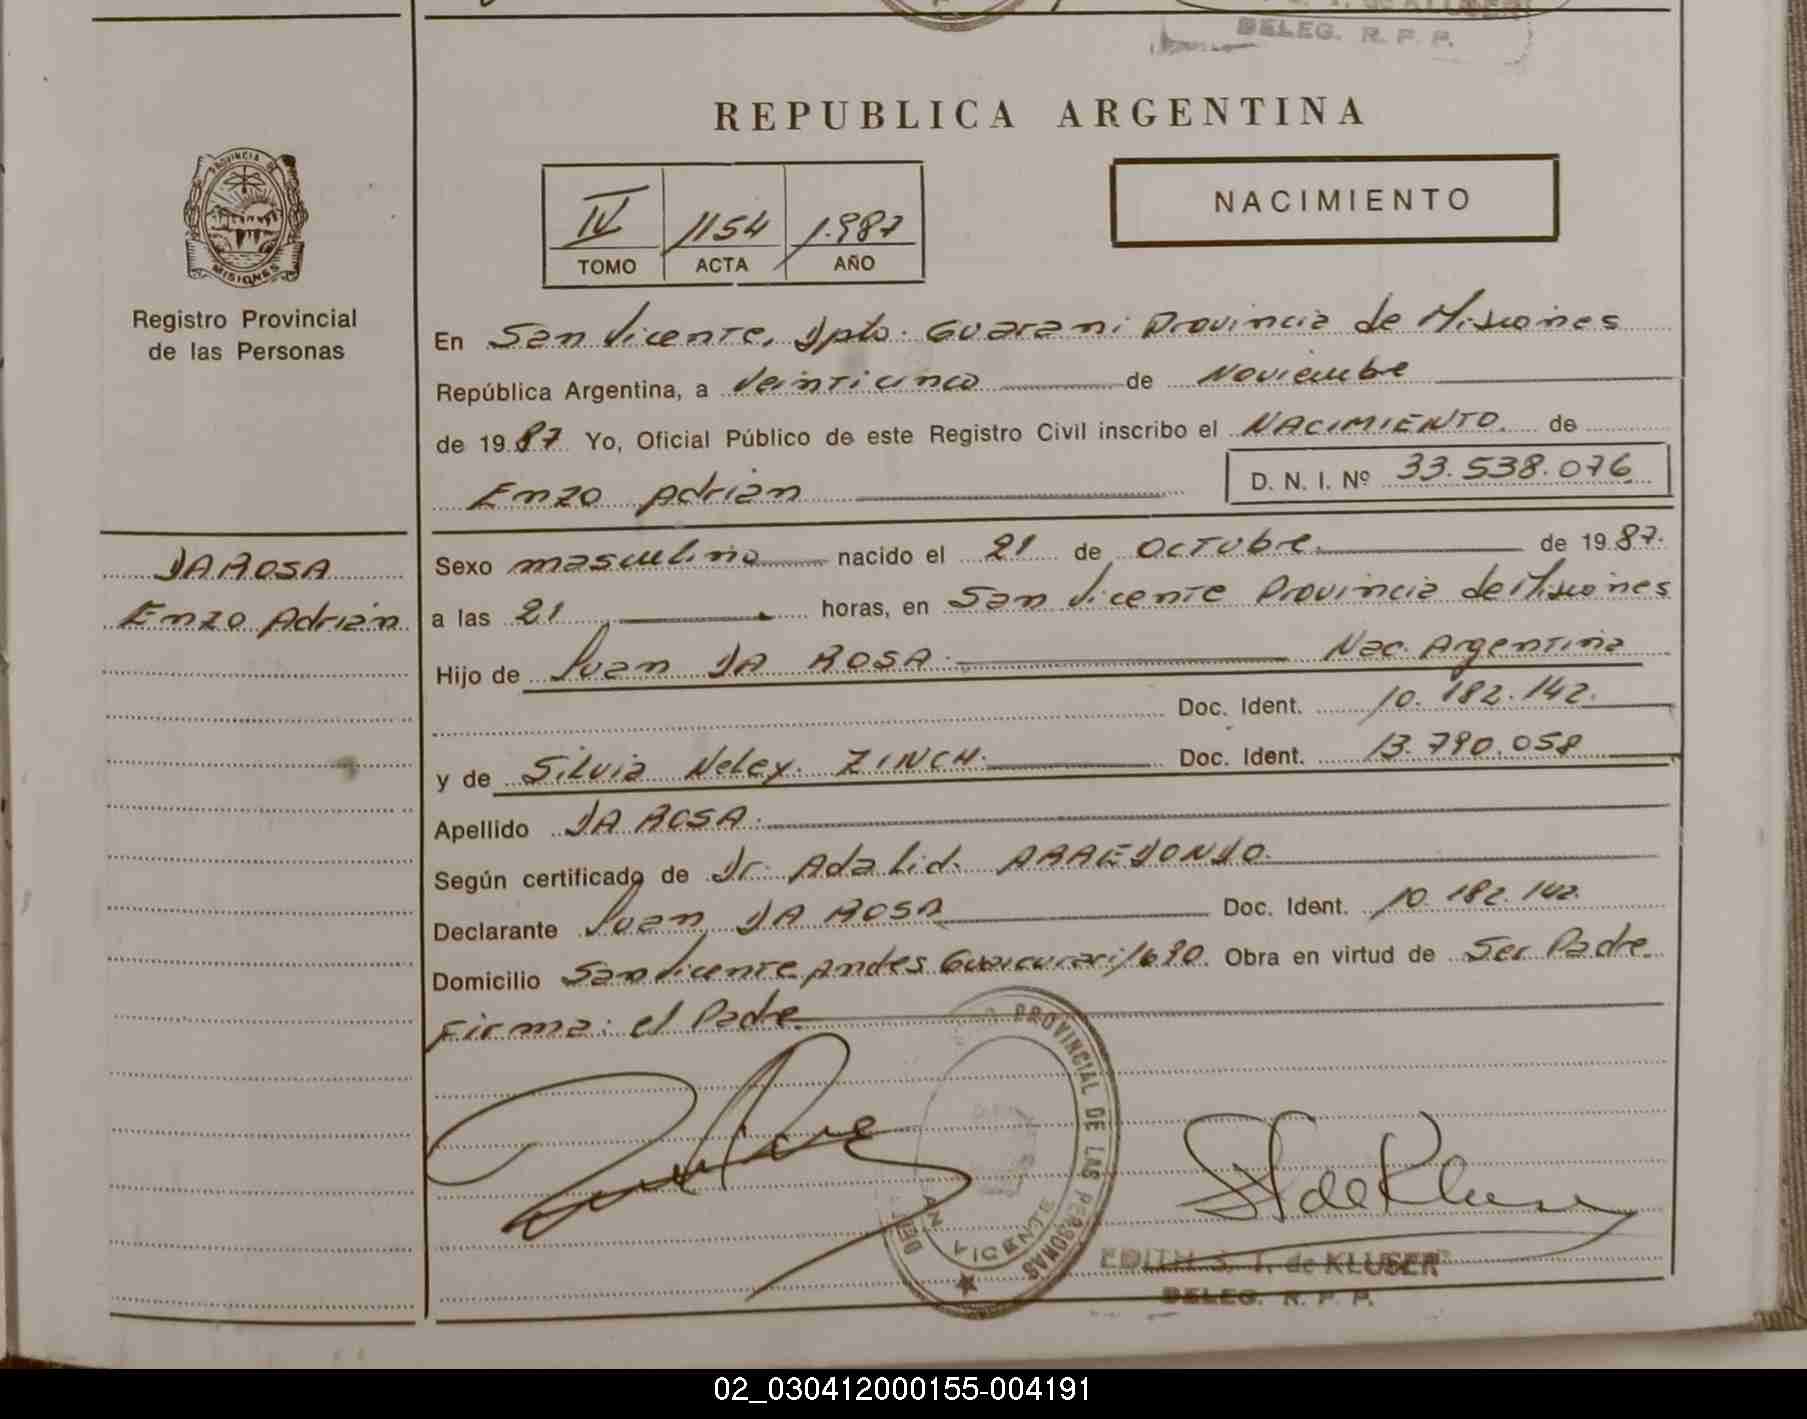 DELEG. R. P. P.
REPUBLICA ARGENTINA
PROVINCIA DE
MISIONES
Registro Provincial
de las Personas
IV 1154 1.987
TOMO ACTA AÑO
NACIMIENTO
En San Vicente, Dpto. Guarani Provincia de Misiones
República Argentina, a Veinticinco de Noviembre
de 19 87 Yo, Oficial Público de este Registro Civil inscribo el NACIMIENTO. de
Enzo Adrián D. N. I. Nº 33.538.076
DA ROSA
Enzo Adrián
Sexo masculino nacido el 21 de Octubre. de 19 87.
a las 21 horas, en San Vicente Provincia de Misiones
Hijo de Juan DA ROSA. Nac. Argentina
Doc. Ident. 10.182.142.
y de Silvia Neley. ZINCH. Doc. Ident. 13.790.058
Apellido DA ROSA.
Según certificado de Dr. Adalid. ARREDONDO.
Declarante Juan DA ROSA Doc. Ident. 10.182.142.
Domicilio San Vicente Andes Guacurari/690. Obra en virtud de Ser Padre.
Firma: el Padre.
PROVINCIAL DE LAS PERSONAS
SAN VICENTE
DELEG.
EDITH S. T. de KLUSER
DELEG. R. P. P.
02_030412000155-004191